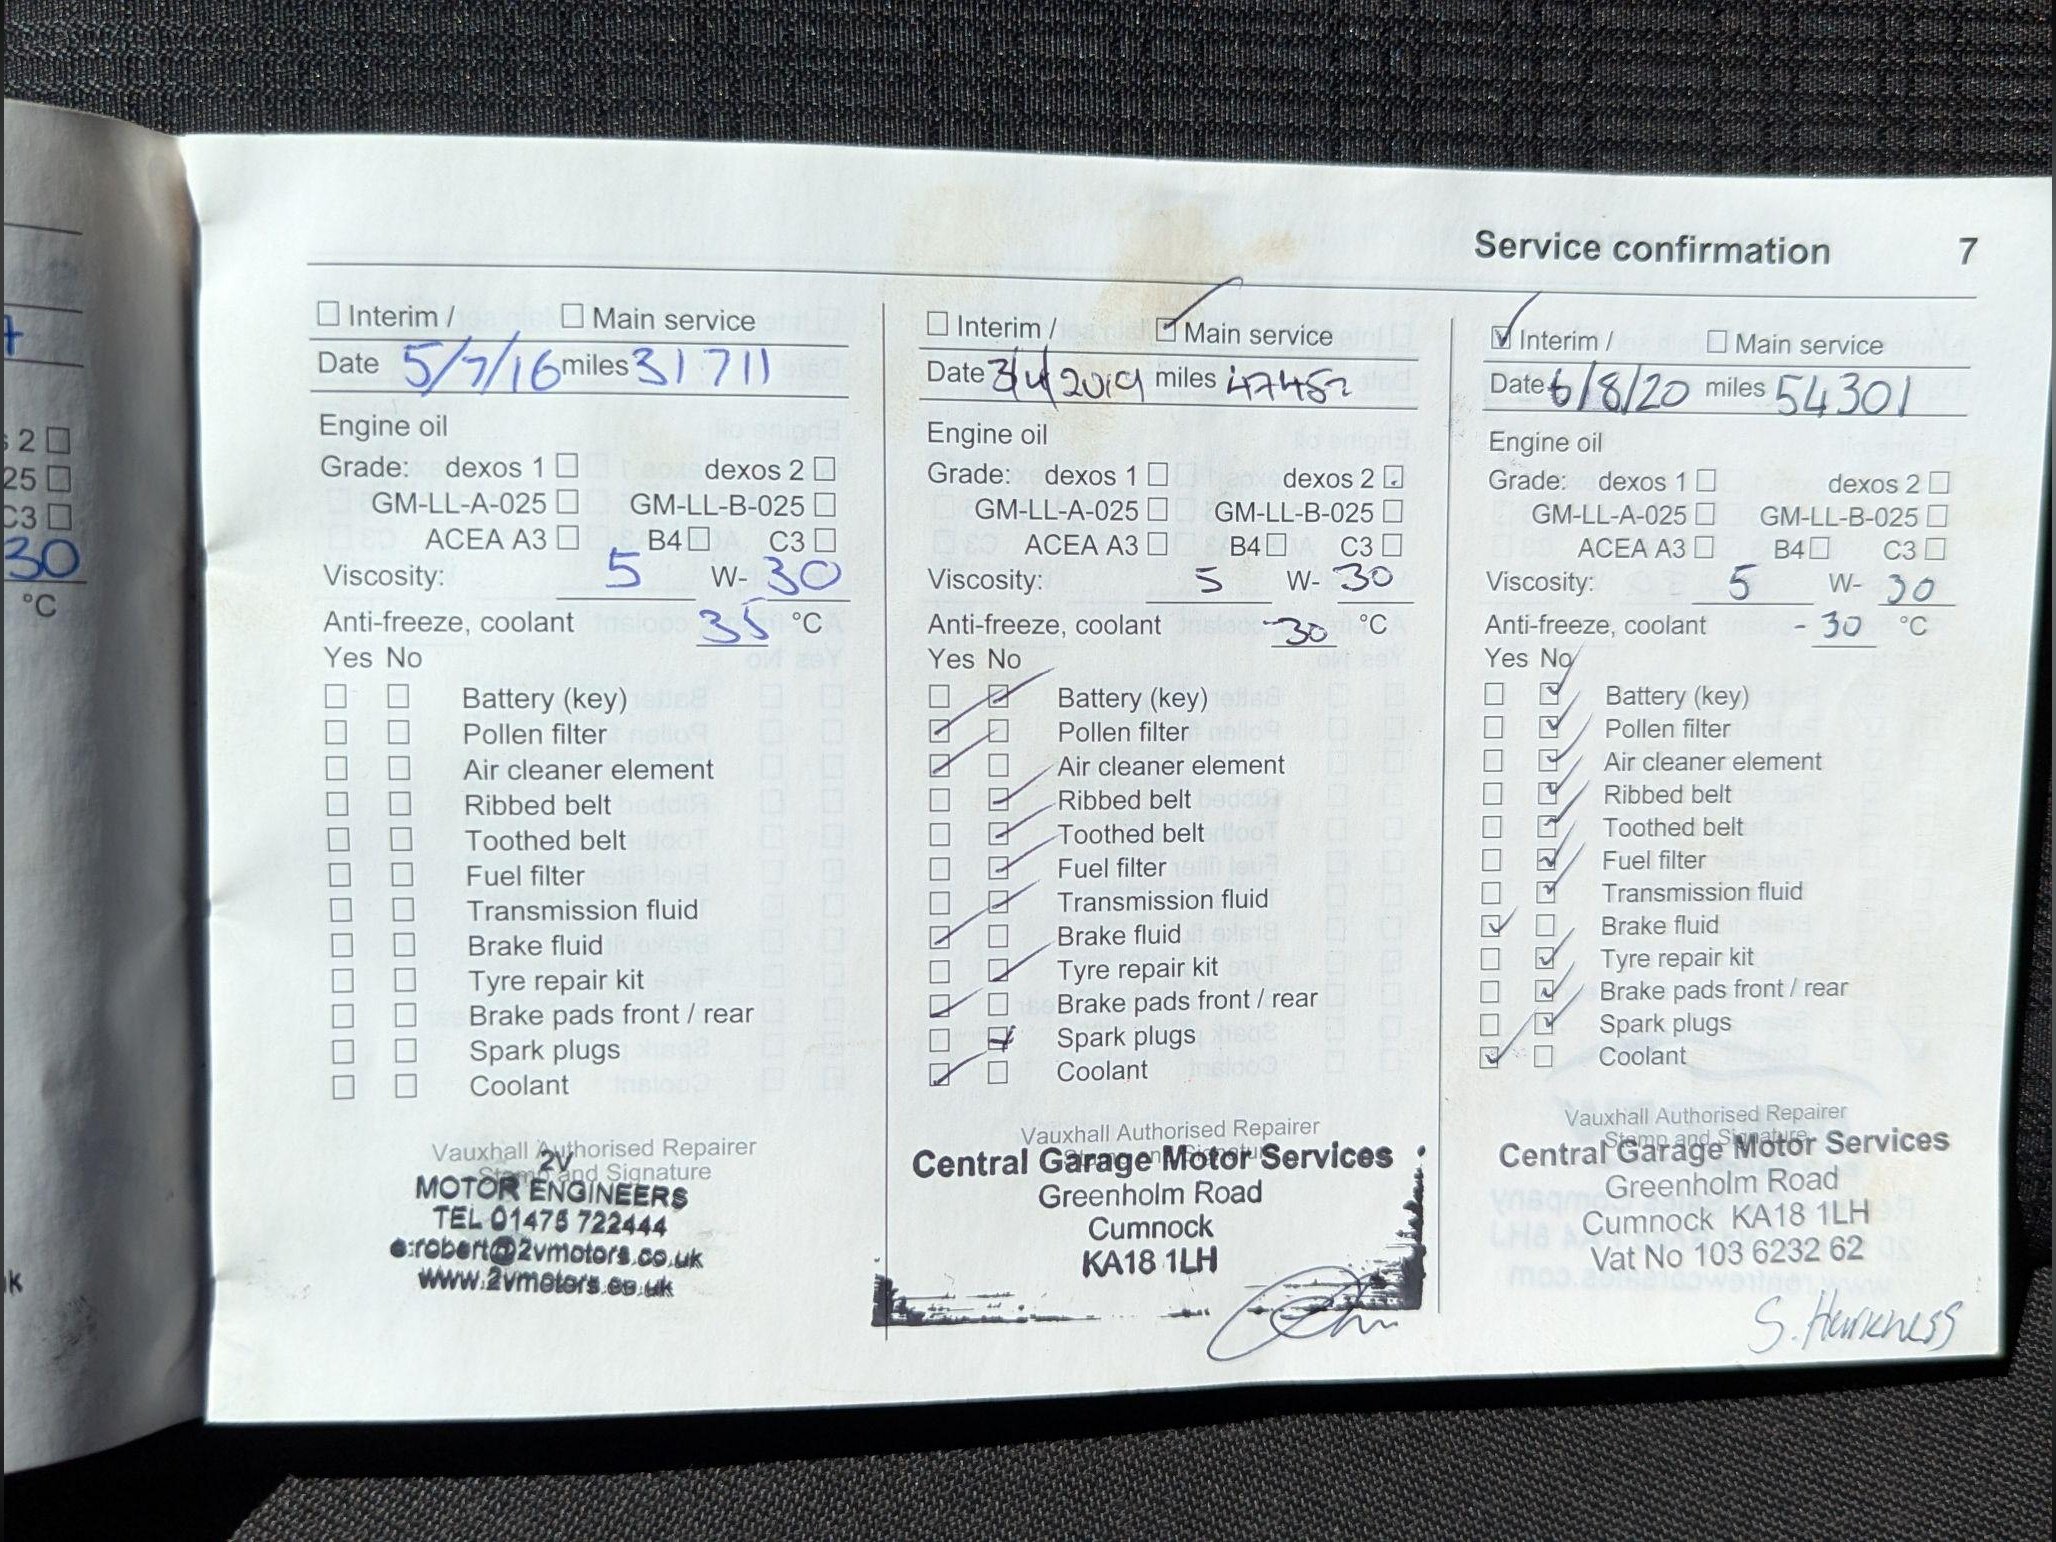 Service confirmation 7
Interim / Main service
Date 5/7/16 miles 31711
Engine oil
Grade: dexos 1 dexos 2
GM-LL-A-025 GM-LL-B-025
ACEA A3 B4 C3
Viscosity: 5 W- 30
Anti-freeze, coolant 35 °C
Yes No
Battery (key)
Pollen filter
Air cleaner element
Ribbed belt
Toothed belt
Fuel filter
Transmission fluid
Brake fluid
Tyre repair kit
Brake pads front / rear
Spark plugs
Coolant
Vauxhall Authorised Repairer
Stamp and Signature
2V
MOTOR ENGINEERS
TEL 01475 722444
e:robert@2vmotors.co.uk
www.2vmotors.co.uk
Interim / Main service
Date 3/4/2019 miles 47452
Engine oil
Grade: dexos 1 dexos 2
GM-LL-A-025 GM-LL-B-025
ACEA A3 B4 C3
Viscosity: 5 W- 30
Anti-freeze, coolant -30 °C
Yes No
Battery (key)
Pollen filter
Air cleaner element
Ribbed belt
Toothed belt
Fuel filter
Transmission fluid
Brake fluid
Tyre repair kit
Brake pads front / rear
Spark plugs
Coolant
Vauxhall Authorised Repairer
Stamp and Signature
Central Garage Motor Services
Greenholm Road
Cumnock
KA18 1LH
Interim / Main service
Date 6/8/20 miles 54301
Engine oil
Grade: dexos 1 dexos 2
GM-LL-A-025 GM-LL-B-025
ACEA A3 B4 C3
Viscosity: 5 W- 30
Anti-freeze, coolant -30 °C
Yes No
Battery (key)
Pollen filter
Air cleaner element
Ribbed belt
Toothed belt
Fuel filter
Transmission fluid
Brake fluid
Tyre repair kit
Brake pads front / rear
Spark plugs
Coolant
Vauxhall Authorised Repairer
Stamp and Signature
Central Garage Motor Services
Greenholm Road
Cumnock KA18 1LH
Vat No 103 6232 62
S.
2
25
C3
30
°C